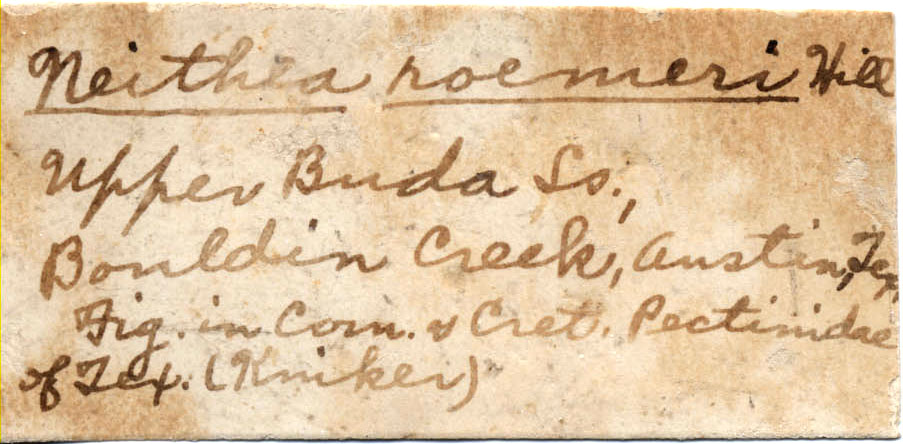 Neithea roemeri Hill
Upper Buda Ls.,
Bouldin Creek, Austin, Tex.
Fig. in Com. & Cret. Pectinidae
of Tex. (Kniker)